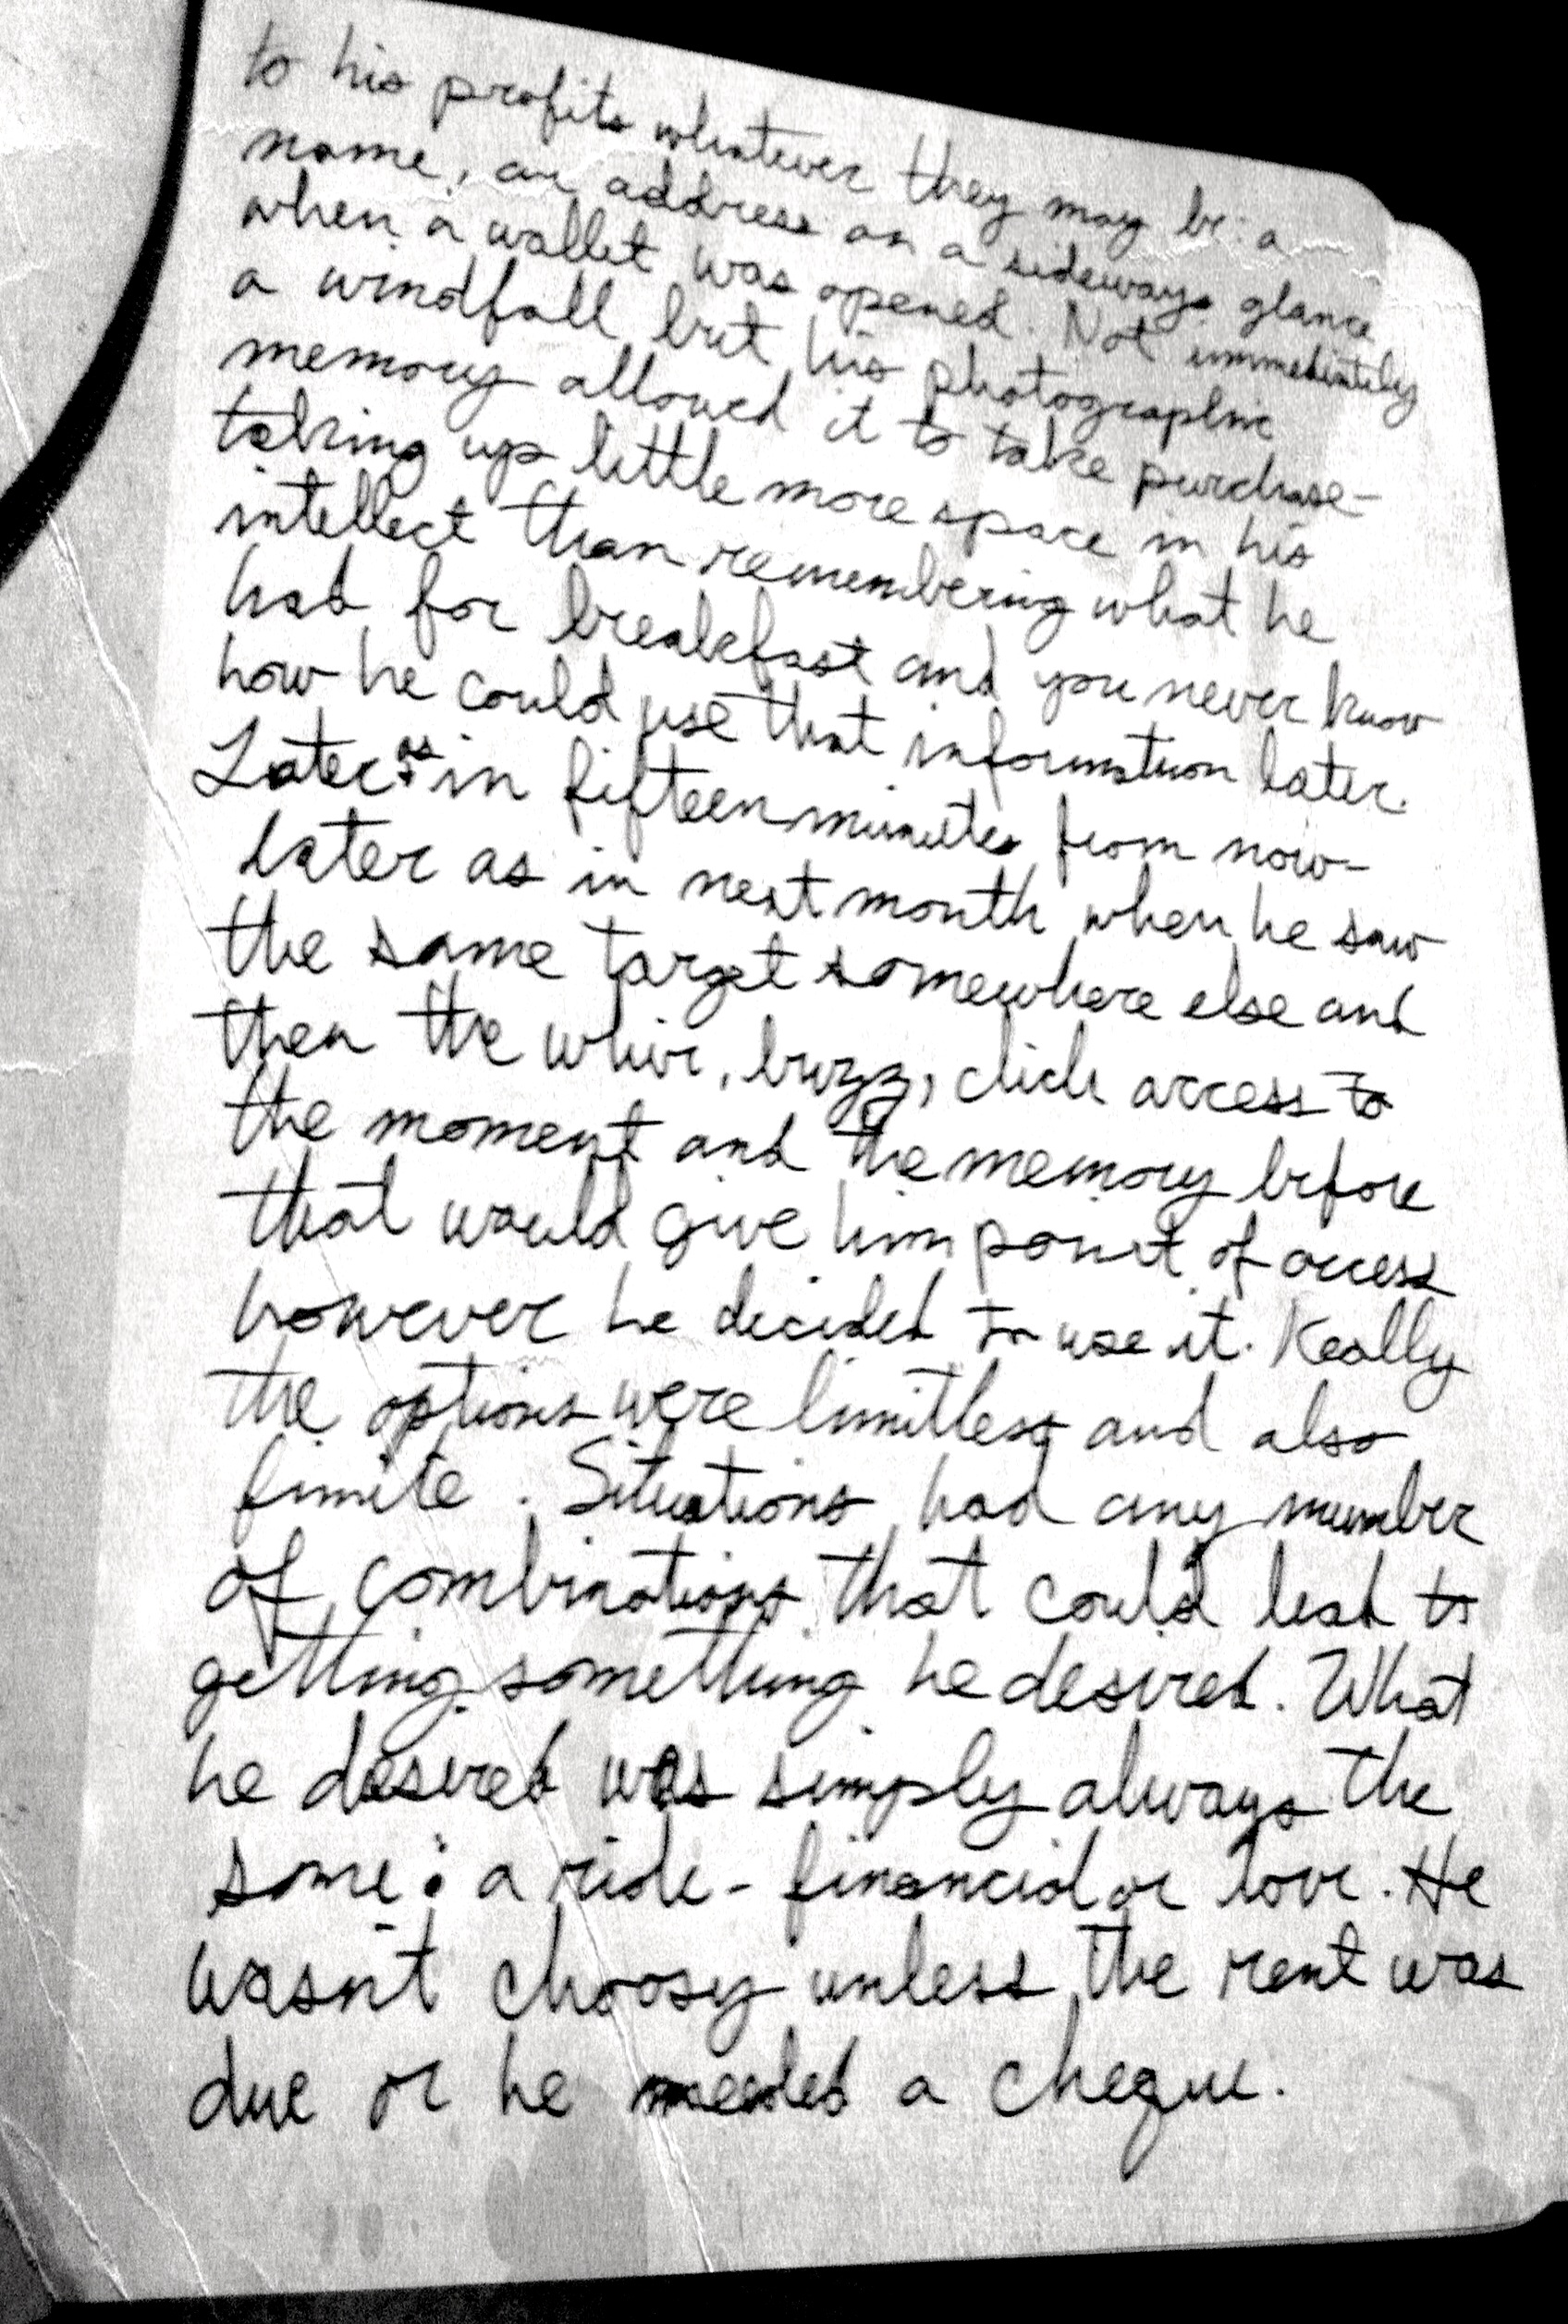 to his profits whatever they may be: a
name, an address on a sideways glance
when a wallet was opened. Not immediately
a windfall but his photographic
memory allowed it to take purchase-
taking up little more space in his
intellect than remembering what he
had for breakfast and you never know
how he could use that information later.
Later as in fifteen minutes from now-
later as in next month when he saw
the same target somewhere else and
then the whir, buzz, click access to
the moment and the memory before
that would give him point of access
however he decided to use it. Really
the options were limitless and also
finite. Situations had any number
of combinations that could lead to
getting something he desired. What
he desired was simply always the
same: a ride - financial or love. He
wasn't choosy unless the rent was
due or he needed a cheque.